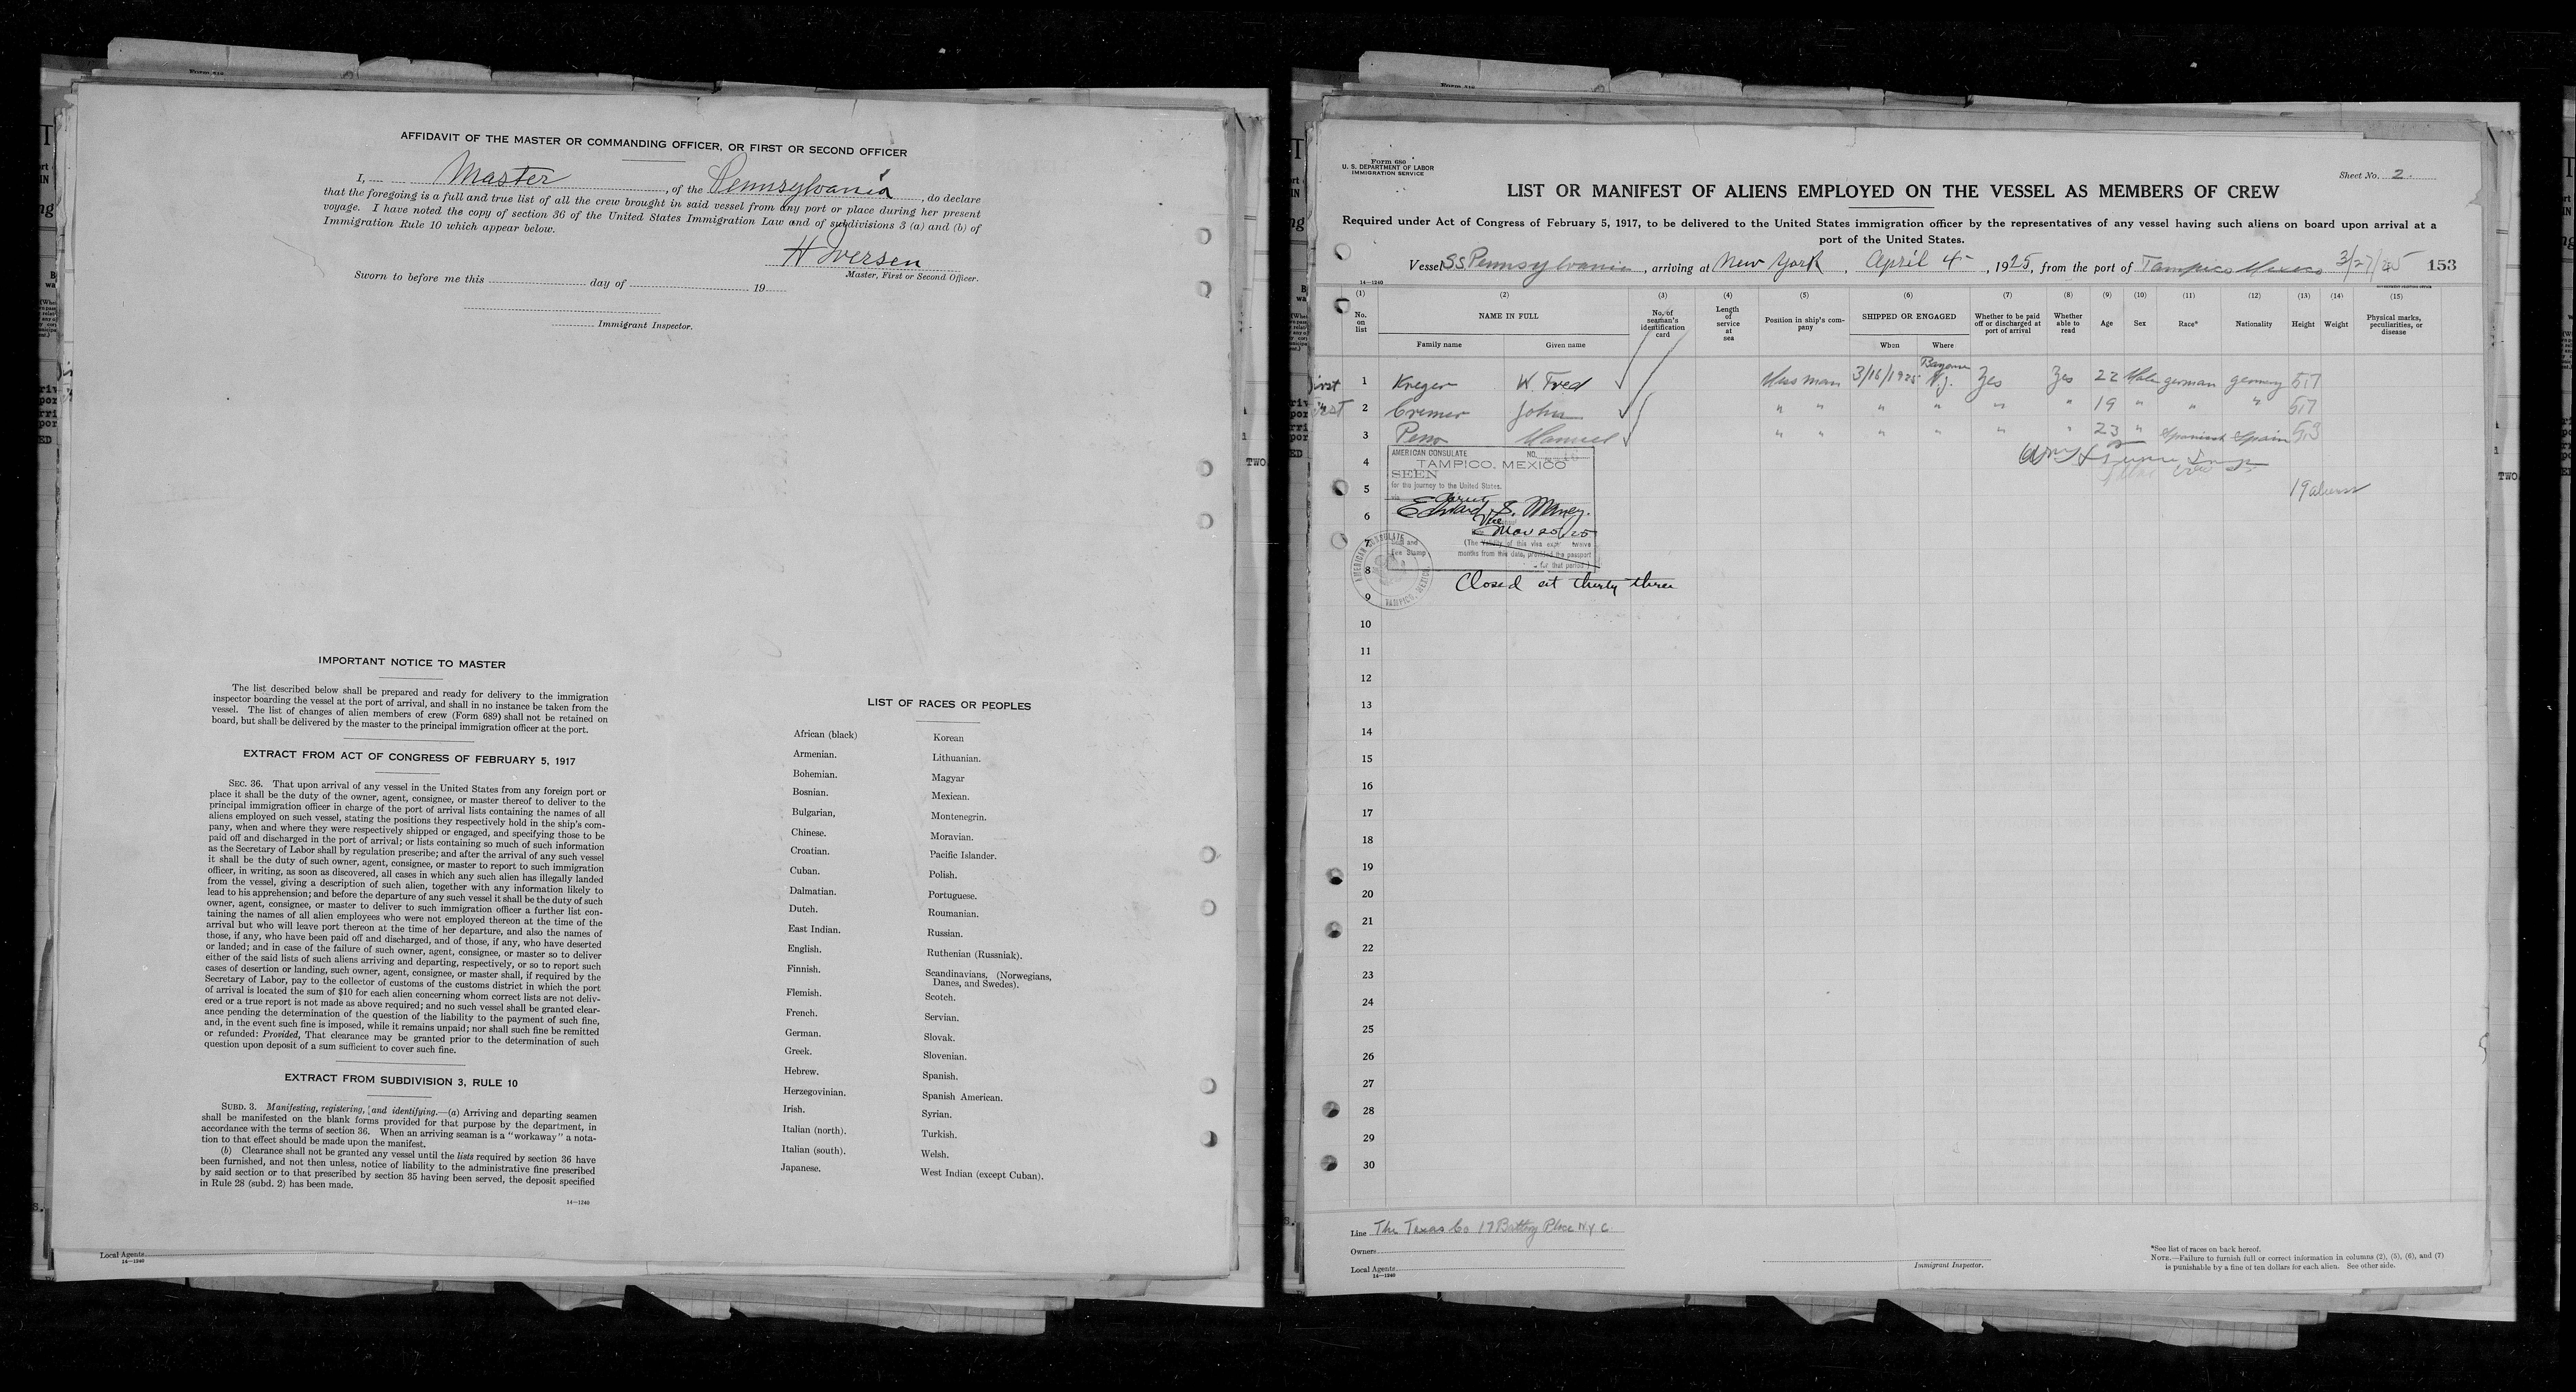 AFFIDAVIT OF THE MASTER OR COMMANDING OFFICER, OR FIRST OR SECOND OFFICER
I, Master, of the Pennsylvania, do declare
that the foregoing is a full and true list of all the crew brought in said vessel from any port or place during her present
voyage. I have noted the copy of section 36 of the United States Immigration Law and of subdivisions 3 (a) and (b) of
Immigration Rule 10 which appear below.
H Iversen
Master, First or Second Officer.
Sworn to before me this day of 19
Immigrant Inspector.
IMPORTANT NOTICE TO MASTER
The list described below shall be prepared and ready for delivery to the immigration
inspector boarding the vessel at the port of arrival, and shall in no instance be taken from the
vessel. The list of changes of alien members of crew (Form 689) shall not be retained on
board, but shall be delivered by the master to the principal immigration officer at the port.
EXTRACT FROM ACT OF CONGRESS OF FEBRUARY 5, 1917
SEC. 36. That upon arrival of any vessel in the United States from any foreign port or
place it shall be the duty of the owner, agent, consignee, or master thereof to deliver to the
principal immigration officer in charge of the port of arrival lists containing the names of all
aliens employed on such vessel, stating the positions they respectively hold in the ship's com-
pany, when and where they were respectively shipped or engaged, and specifying those to be
paid off and discharged in the port of arrival; or lists containing so much of such information
as the Secretary of Labor shall by regulation prescribe; and after the arrival of any such vessel
it shall be the duty of such owner, agent, consignee, or master to report to such immigration
officer, in writing, as soon as discovered, all cases in which any such alien has illegally landed
from the vessel, giving a description of such alien, together with any information likely to
lead to his apprehension; and before the departure of any such vessel it shall be the duty of such
owner, agent, consignee, or master to deliver to such immigration officer a further list con-
taining the names of all alien employees who were not employed thereon at the time of the
arrival but who will leave port thereon at the time of her departure, and also the names of
those, if any, who have been paid off and discharged, and of those, if any, who have deserted
or landed; and in case of the failure of such owner, agent, consignee, or master so to deliver
either of the said lists of such aliens arriving and departing, respectively, or so to report such
cases of desertion or landing, such owner, agent, consignee, or master shall, if required by the
Secretary of Labor, pay to the collector of customs of the customs district in which the port
of arrival is located the sum of $10 for each alien concerning whom correct lists are not deliv-
ered or a true report is not made as above required; and no such vessel shall be granted clear-
ance pending the determination of the question of the liability to the payment of such fine,
and, in the event such fine is imposed, while it remains unpaid; nor shall such fine be remitted
or refunded: Provided, That clearance may be granted prior to the determination of such
question upon deposit of a sum sufficient to cover such fine.
EXTRACT FROM SUBDIVISION 3, RULE 10
SUBD. 3. Manifesting, registering, and identifying.—(a) Arriving and departing seamen
shall be manifested on the blank forms provided for that purpose by the department, in
accordance with the terms of section 36. When an arriving seaman is a "workaway" a nota-
tion to that effect should be made upon the manifest.
(b) Clearance shall not be granted any vessel until the lists required by section 36 have
been furnished, and not then unless, notice of liability to the administrative fine prescribed
by said section or to that prescribed by section 35 having been served, the deposit specified
in Rule 28 (subd. 2) has been made.
14—1240
LIST OF RACES OR PEOPLES
African (black)
Armenian.
Bohemian.
Bosnian.
Bulgarian,
Chinese.
Croatian.
Cuban.
Dalmatian.
Dutch.
East Indian.
English.
Finnish.
Flemish.
French.
German.
Greek.
Hebrew.
Herzegovinian.
Irish.
Italian (north).
Italian (south).
Japanese.
Korean
Lithuanian.
Magyar
Mexican.
Montenegrin.
Moravian.
Pacific Islander.
Polish.
Portuguese.
Roumanian.
Russian.
Ruthenian (Russniak).
Scandinavians, (Norwegians,
Danes, and Swedes).
Scotch.
Servian.
Slovak.
Slovenian.
Spanish.
Spanish American.
Syrian.
Turkish.
Welsh.
West Indian (except Cuban).
Local Agents
14—1240
Form 680
U. S. DEPARTMENT OF LABOR
IMMIGRATION SERVICE
Sheet No. 2.
LIST OR MANIFEST OF ALIENS EMPLOYED ON THE VESSEL AS MEMBERS OF CREW
Required under Act of Congress of February 5, 1917, to be delivered to the United States immigration officer by the representatives of any vessel having such aliens on board upon arrival at a
port of the United States.
Vessel SS Pennsylvania, arriving at New York, April 4, 1925, from the port of Tampico Mexico 3/27/25 153
14—1240
(1) (2) (3) (4) (5) (6) (7) (8) (9) (10) (11) (12) (13) (14) (15)
No. on list NAME IN FULL No. of seaman's identification card Length of service at sea Position in ship's com-pany SHIPPED OR ENGAGED Whether to be paid off or discharged at port of arrival Whether able to read Age Sex Race* Nationality Height Weight Physical marks, peculiarities, or disease
Family name Given name When Where
First 1 Kreger W. Fred Mess man 3/16/1925 Bayonne N.J. Yes Yes 22 Male german germany 5,7
First 2 Cremer John " " " " " " 19 " " " 5,7
3 Peno Manuel " " " " " " 23 " Spanish Spain 5,3
4
5 19 aliens
6
7
8
9
AMERICAN CONSULATE NO.
TAMPICO, MEXICO
SEEN
for the journey to the United States.
via Direct
Edward S. Maney.
Vice
Mar 25/25
(The validity of this visa expires twelve
months from this date, provided the passport
for that period)
Fee Stamp
AMERICAN CONSULATE
TAMPICO, MEXICO
Closed at thirty three
10
11
12
13
14
15
16
17
18
19
20
21
22
23
24
25
26
27
28
29
30
Line The Texas Co 17 Battery Place N Y C.
Owners
Local Agents
14—1240
Immigrant Inspector.
*See list of races on back hereof.
NOTE.—Failure to furnish full or correct information in columns (2), (5), (6), and (7)
is punishable by a fine of ten dollars for each alien. See other side.